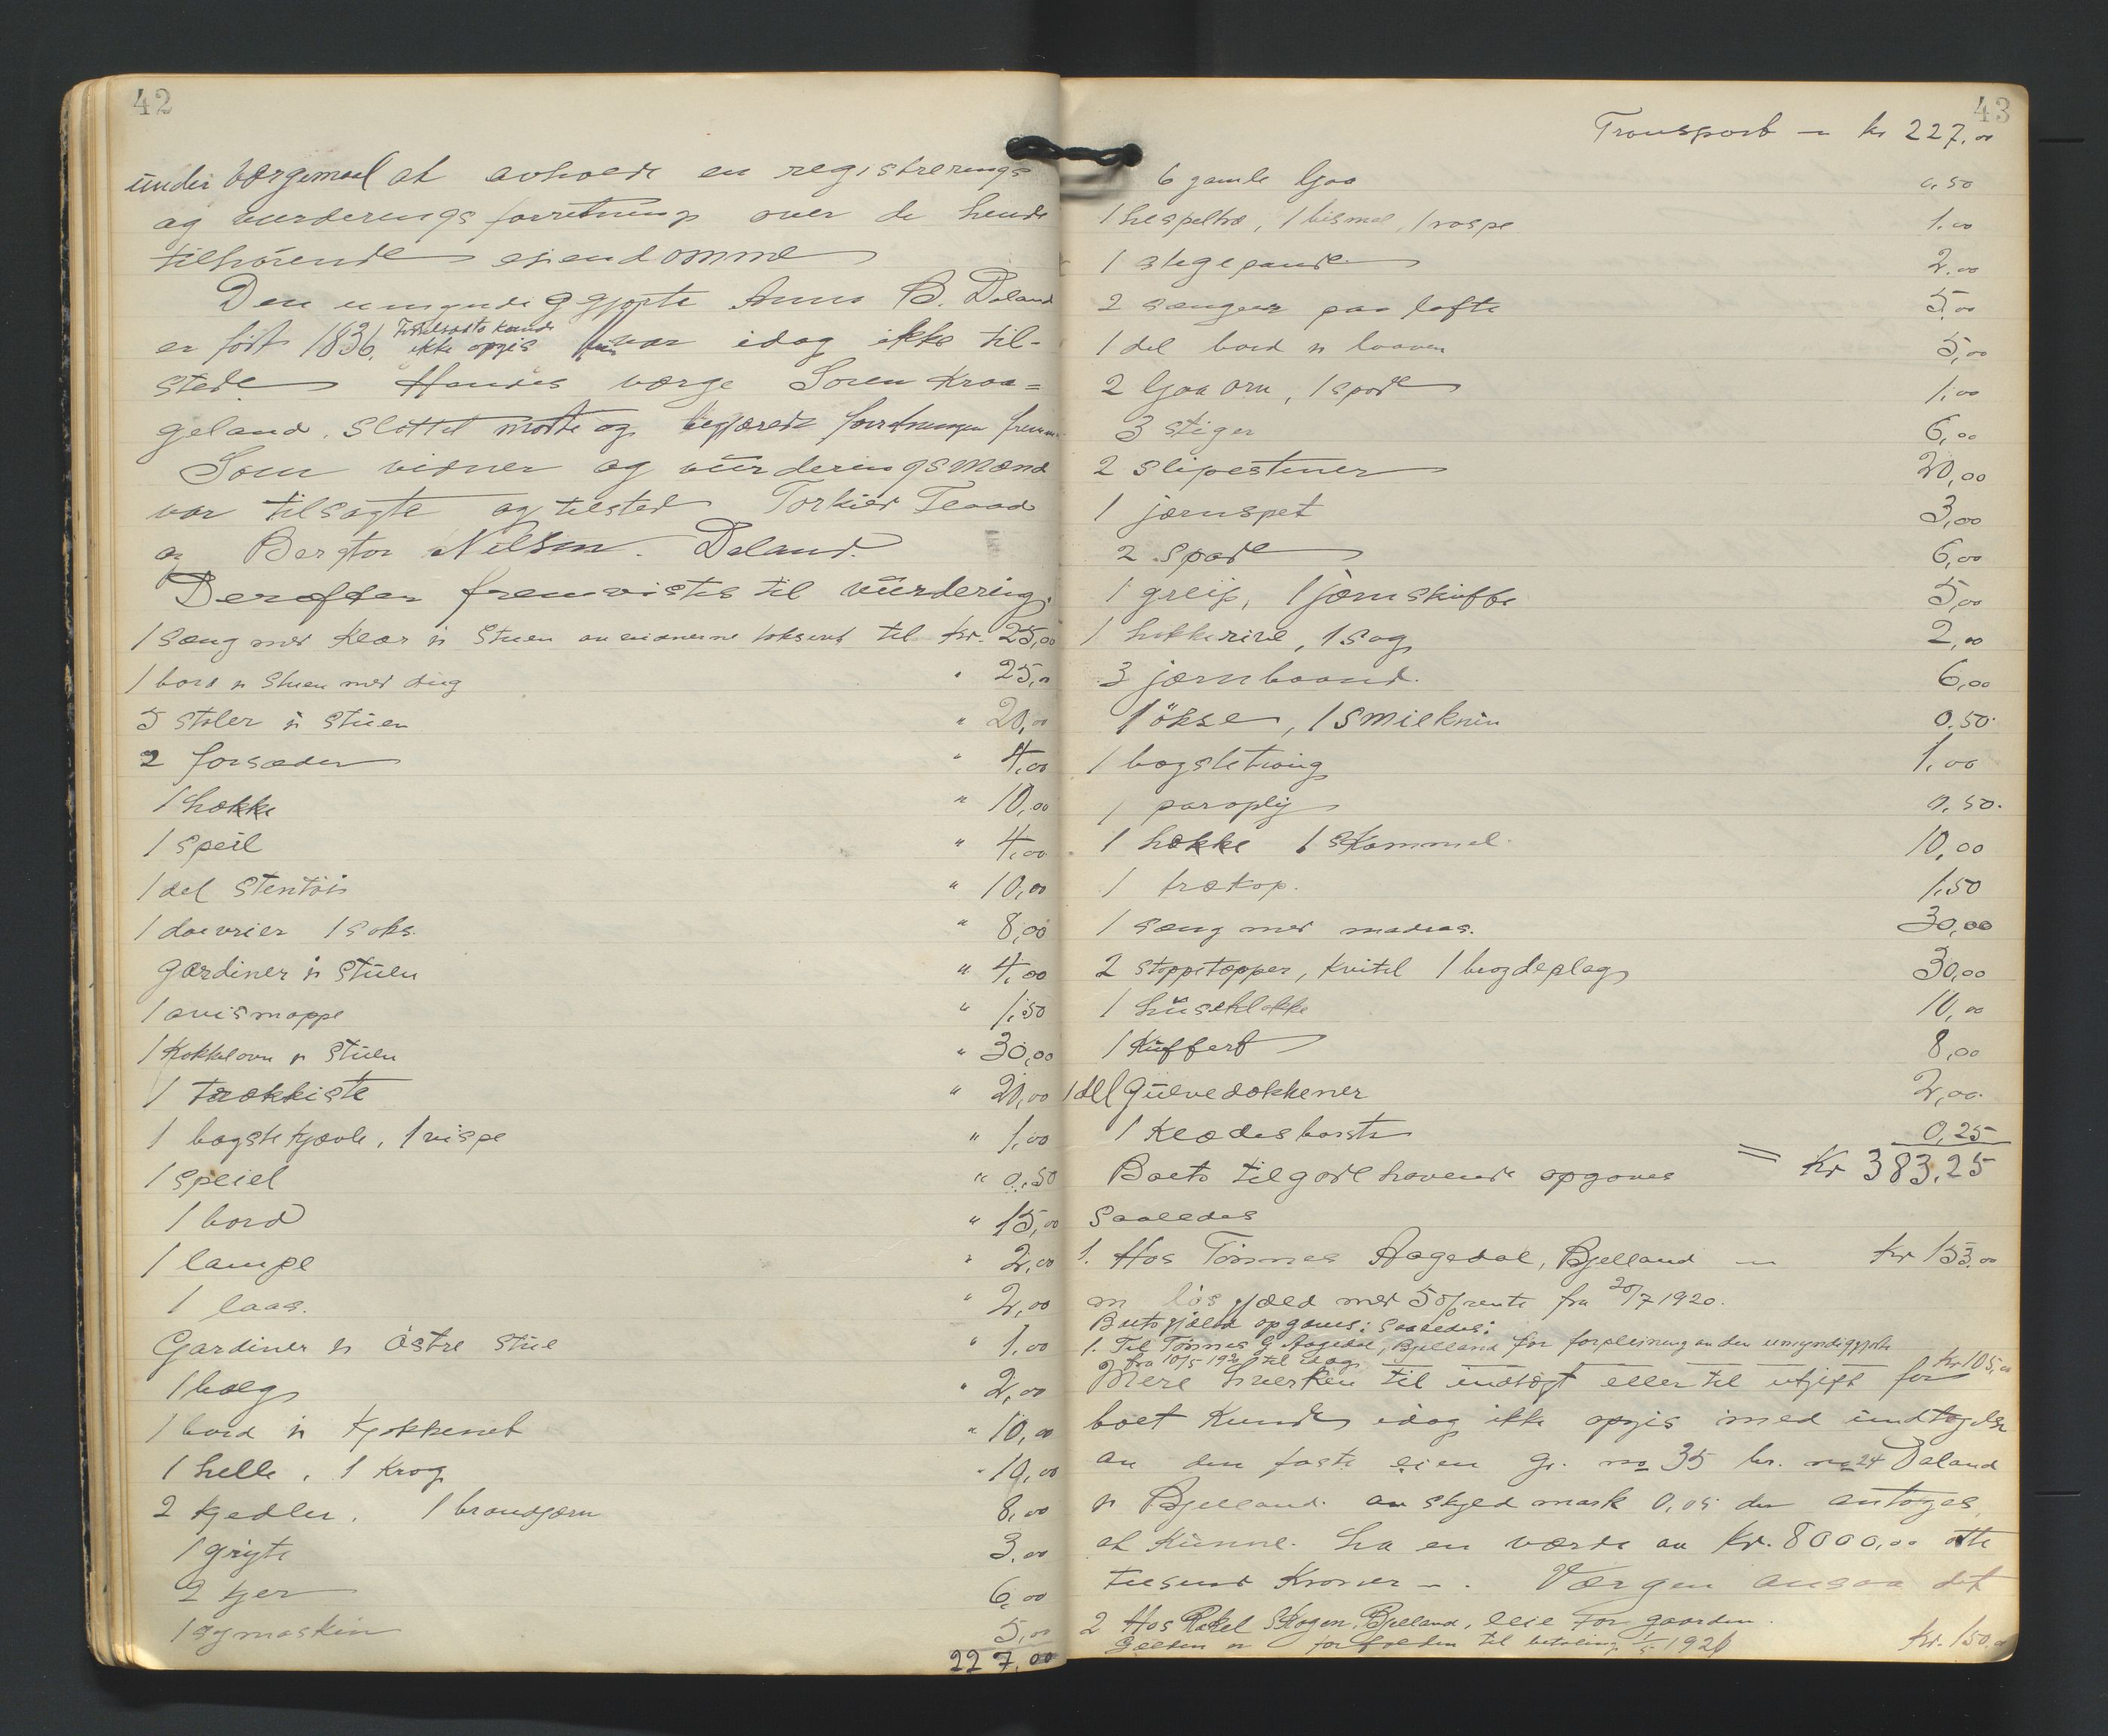 42
under værgemaal at avholde en registrerings
og vurderings forretning over de hende
tilhørende eiendomme
Den umyndiggjorte Anna B. Daland
er født 1836. Fødselsdato kunde ikke opgis hun var idag ikke til-
stede Hendes værge Søren Kraa=
geland, Slottet mødte og begjærede forretningen frem
Som vidner og vurderingsmænd
var tilsagte og tilstede Torkild
og Bergtor Nilsen. Daland.
Derefter fremvistes til vurdering.
1 sæng med klær i Stuen av vidnerne taksert til Kr. 25,00
1 bord i Stuen med dug " 25,00
5 stoler i stuen " 20,00
2 forsæder " 4,00
1 hække " 10,00
1 speil " 4,00
1 del Stentøi " 10,00
1 saks. " 8,00
Gardiner i stuen " 4,00
1 avismappe " 1,50
1 Kokkelovn i stuen " 30,00
1 trækkiste " 20,00
1 bagstekjævle, 1 vispe " 1,00
1 speiel " 0,50
1 bord " 15,00
1 lampe " 2,00
1 laas. " 2,00
Gardiner i østre stue " 1,00
1 bælg " 2,00
1 bord i kjøkkenet " 10,00
1 helle, 1 krog " 10,00
2 kjedler, 1 brandjærn 8,00
1 gryte 3,00
2 kjer 6,00
1 symaskin 5,00
227,00
43
Transport — kr 227,00
6 gamle ljaa 0,50
1 hespeltræ, 1 bismer, 1 raspe 1,00
1 stegepande 2,00
2 sænger paa lofte 5,00
1 del bord i laaven 5,00
2 ljaa orv, 1 spade 1,00
3 stiger 6,00
2 slipestener 20,00
1 jærnspet 3,00
2 spade 6,00
1 greip, 1 jærnskuffe 5,00
1 hakkerive, 1 sag 2,00
3 jærnbaand. 6,00
1 økse, 1 smiekniv 0,50
1 bagstetraug 1,00
1 paraply 0,50.
1 hække 1 skammel 10,00
1 trækop. 1,50
1 sæng med madras. 30,00
2 stoppetæpper, kvitel 1 brogdeplag 30,00
1 huseklokke 10,00
1 Kuffert 8,00
1 del Gulvedækkener 2,00
1 Klædesbørste 0,25
= Kr 383,25
Boets tilgodehavende opgaves
saaledes
1. Hos Tønnes Aagedal, Bjelland — kr 153,00
løs gjæld med 5 % rente fra 20/7 1920.
Boets gjæld opgaves: saaledes:
1. Til Tønnes G Aagedal, Bjelland for forpleining av den umyndiggjorte
fra 10/5 1920 til idag kr 105,00
Mere hverken til indtægt eller til utgift for
boet kunde idag ikke opgis med undtagelse
av den faste eien gr. no 35 br. no 24 Daland
i Bjelland. av skyld mark 0,05 der antoges
at kunne ha en værde av kr. 8000,00 otte
tusend Kroner —. Værgen ansaa det
2 Hos Rakel Skogen, Bjelland, leie for gaarden.
forfalden til betaling 1920 Kr. 150,00